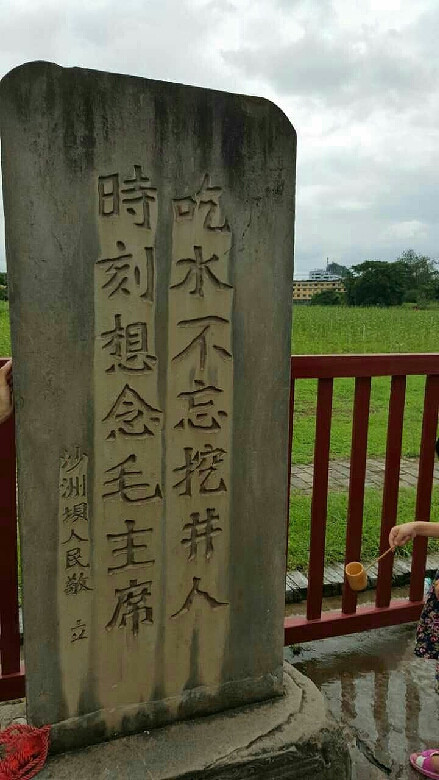 吃水不忘挖井人
時刻想念毛主席
沙洲垻人民敬立